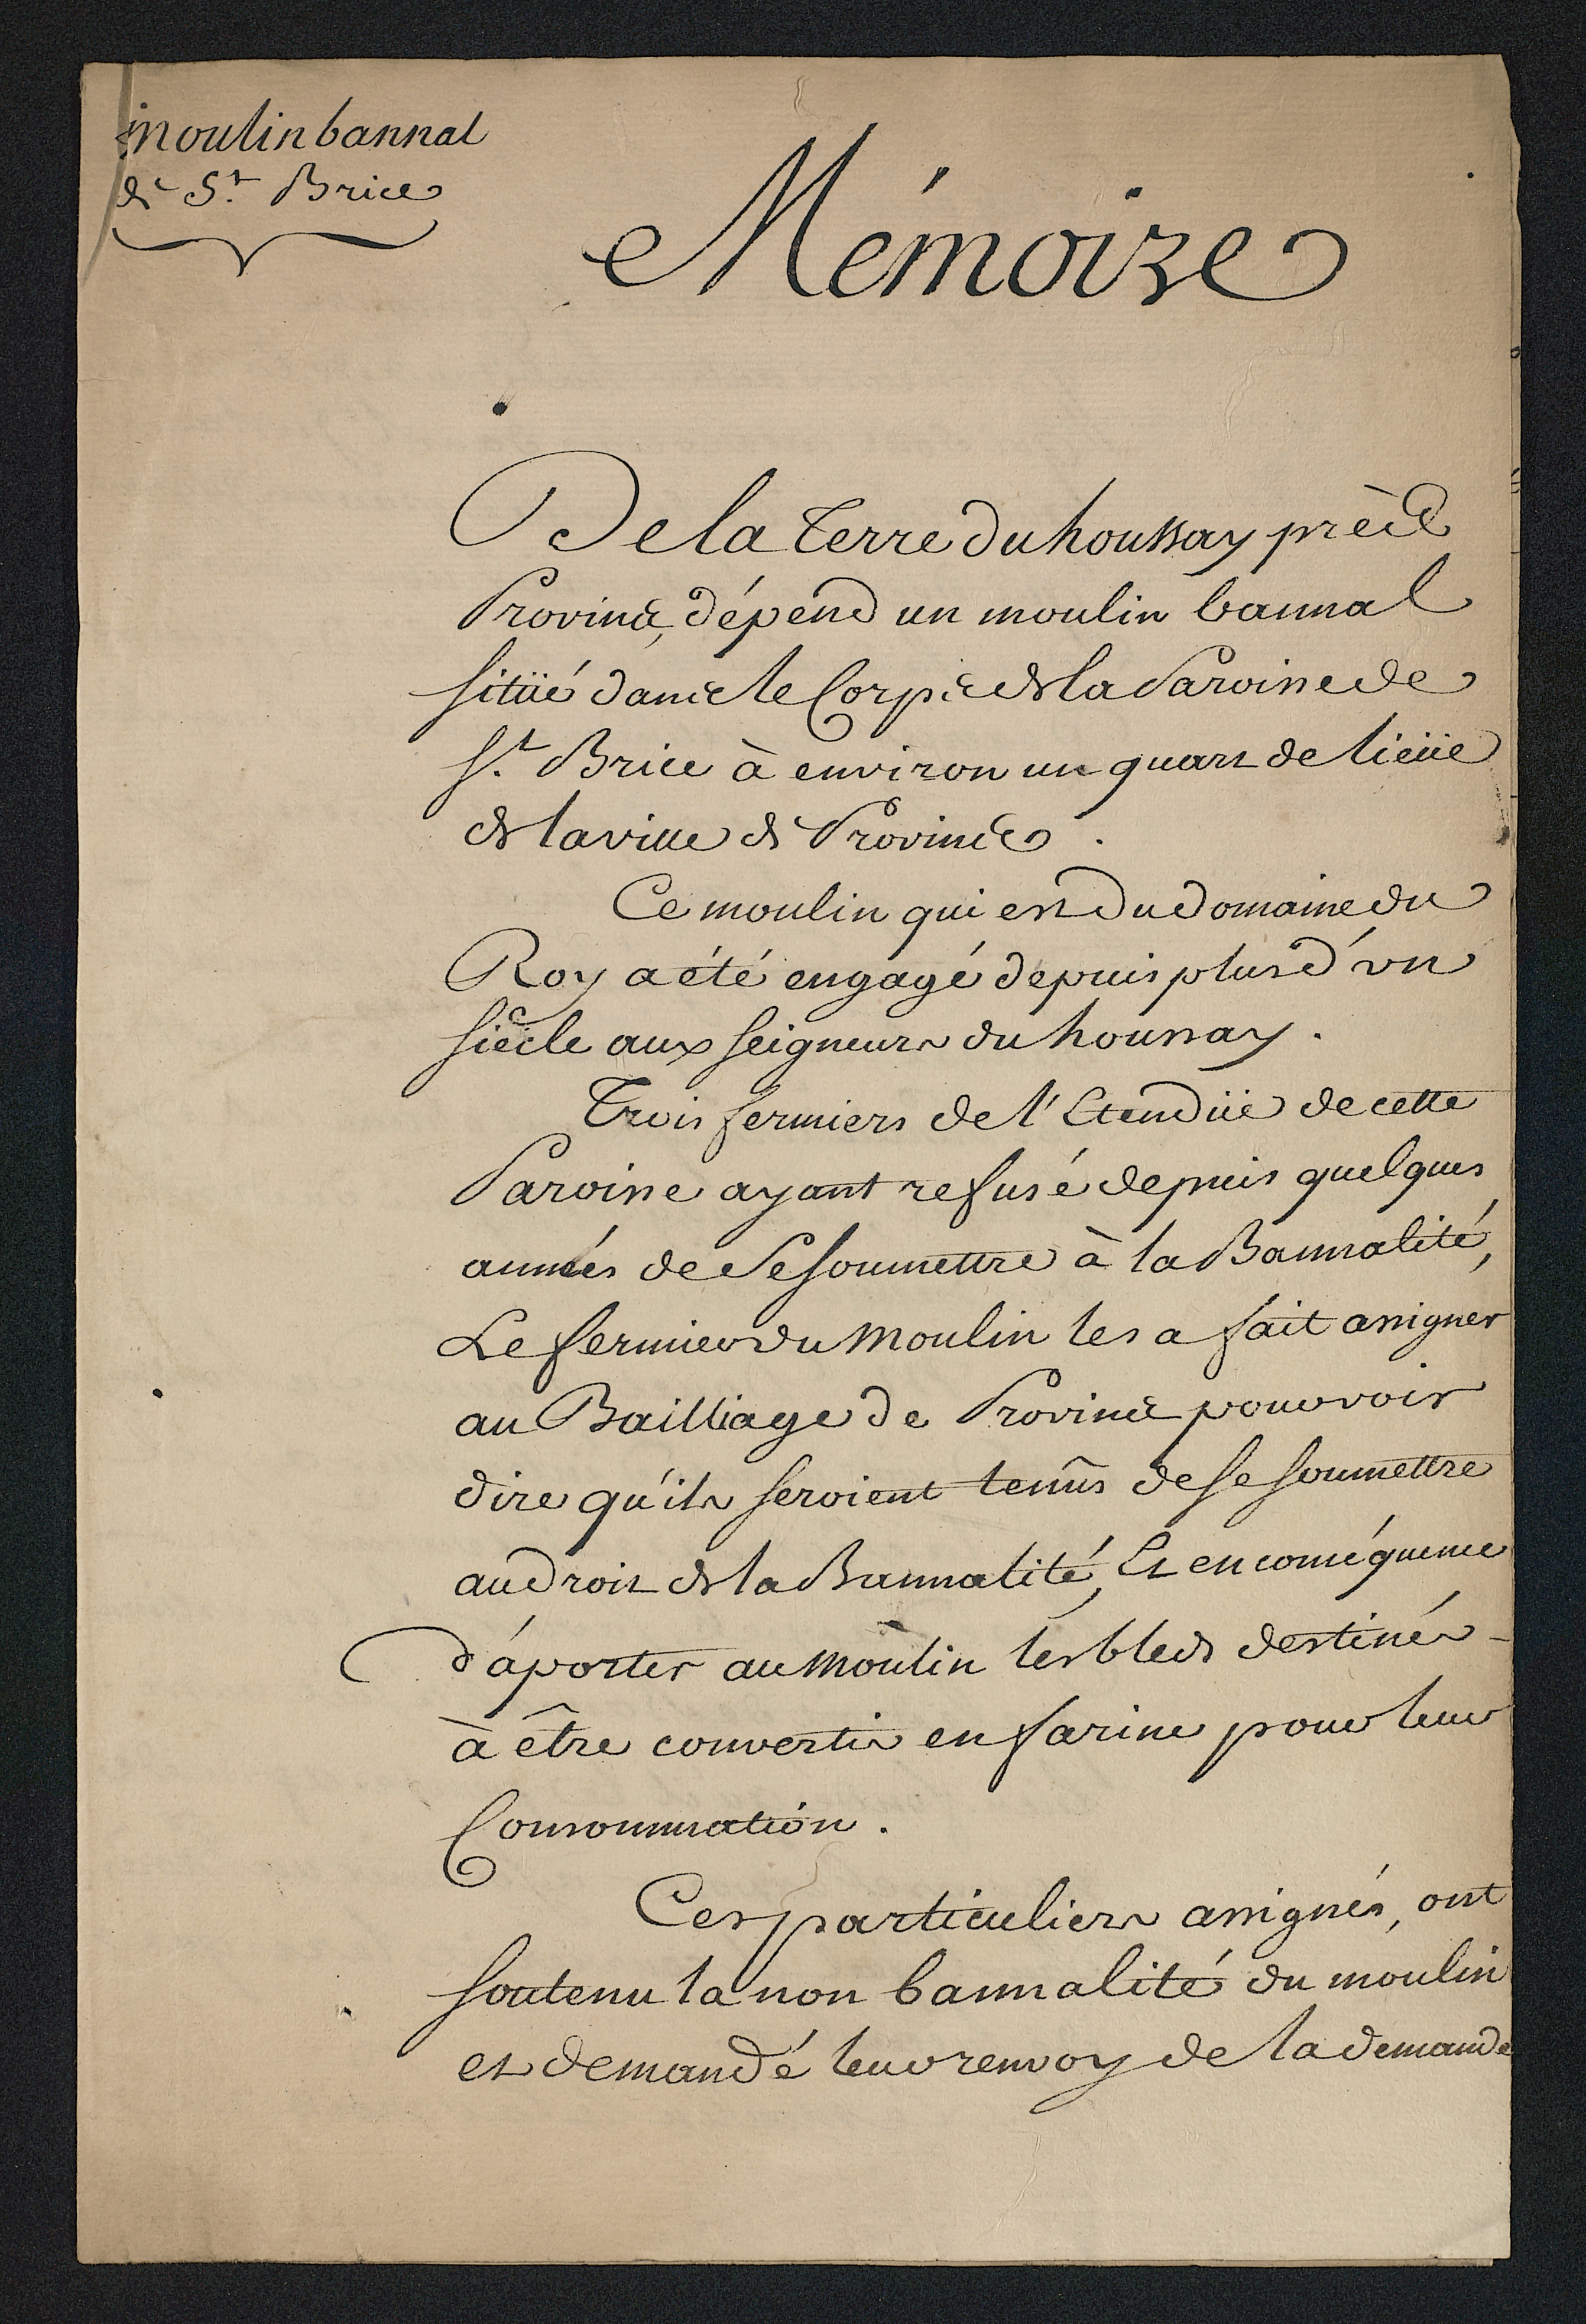 Moulin bannal
de St. Brice
Mémoire
De la Terre du houssay près
Provins, dépend un moulin bannal
sitüé dans le Corps de la Paroisse de
St. Brice à environ un quart de lieüe
de la ville de Provins.
Ce moulin qui est du domaine du
Roy a été engagé depuis plus d'un
siècle aux seigneurs du houssay.
Trois fermiers de l'Etendüe de cette
Paroisse ayant refusé depuis quelques
années de se soumettre à la Bannalité,
Le fermier du Moulin les a fait assigner
au Bailliage de Provins pour voir
dire qu'ils seroient tenûs de se soumettre
au droit de la Bannalité, Et en conséquence
d'aporter au Moulin les bleds destinés
à être convertis en farine pour leur
Consommation.
Ces particuliers assignés, ont
soutenu la non bannalité du moulin
et demandé leur renvoy de la demande